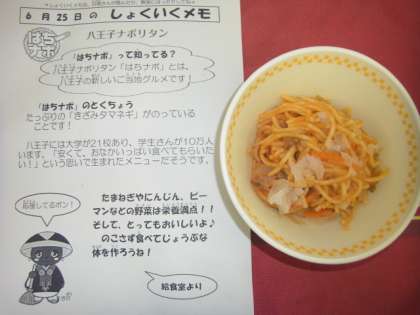 6月25日の しょくいくメモ
はち
ナポ
八王子ナポリタン
「はちナポ」って知ってる？
八王子ナポリタン「はちナポ」とは、
八王子の新しいご当地グルメです！
「はちナポ」のとくちょう
たっぷりの「きざみタマネギ」がのっている
ことです！
八王子には大学が21校あり、学生さんが10万人
います。「安くて、おなかいっぱい食べてもらいた
い！」という思いで生まれたメニューだそうです。
応援してるポン！
たまねぎやにんじん、ピー
マンなどの野菜は栄養満点！！
そして、とってもおいしいよ♪
のこさず食べてじょうぶな
体を作ろうね！
給食室より